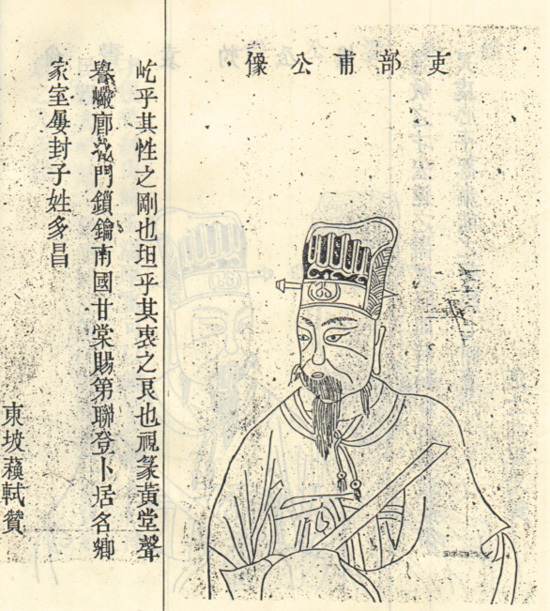 吏部甫公像
屹乎其性之剛也坦乎其衷之良也視篆黃堂聲
譽巖廊門鎖鑰南國甘棠賜第聯登卜居名鄉
家室屢封子姓多昌
東坡蘓軾贊